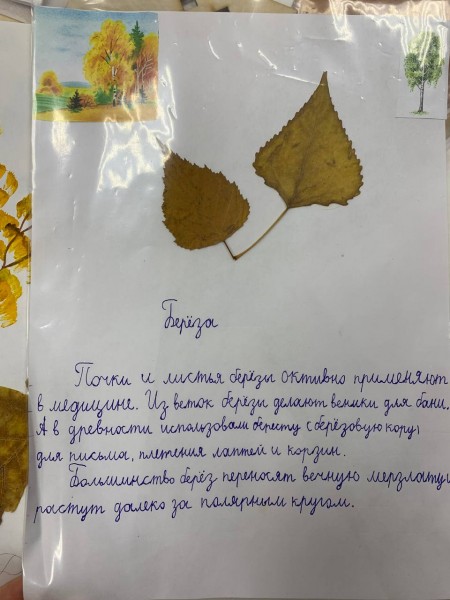 Берёза
Почки и листья берёзы активно применяют
в медицине. Из веток берёзы делают веники для бани.
А в древности использовали бересту (берёзовую кору)
для письма, плетения лаптей и корзин.
Большинство берёз переносят вечную мерзлоту,
растут далеко за полярным кругом.